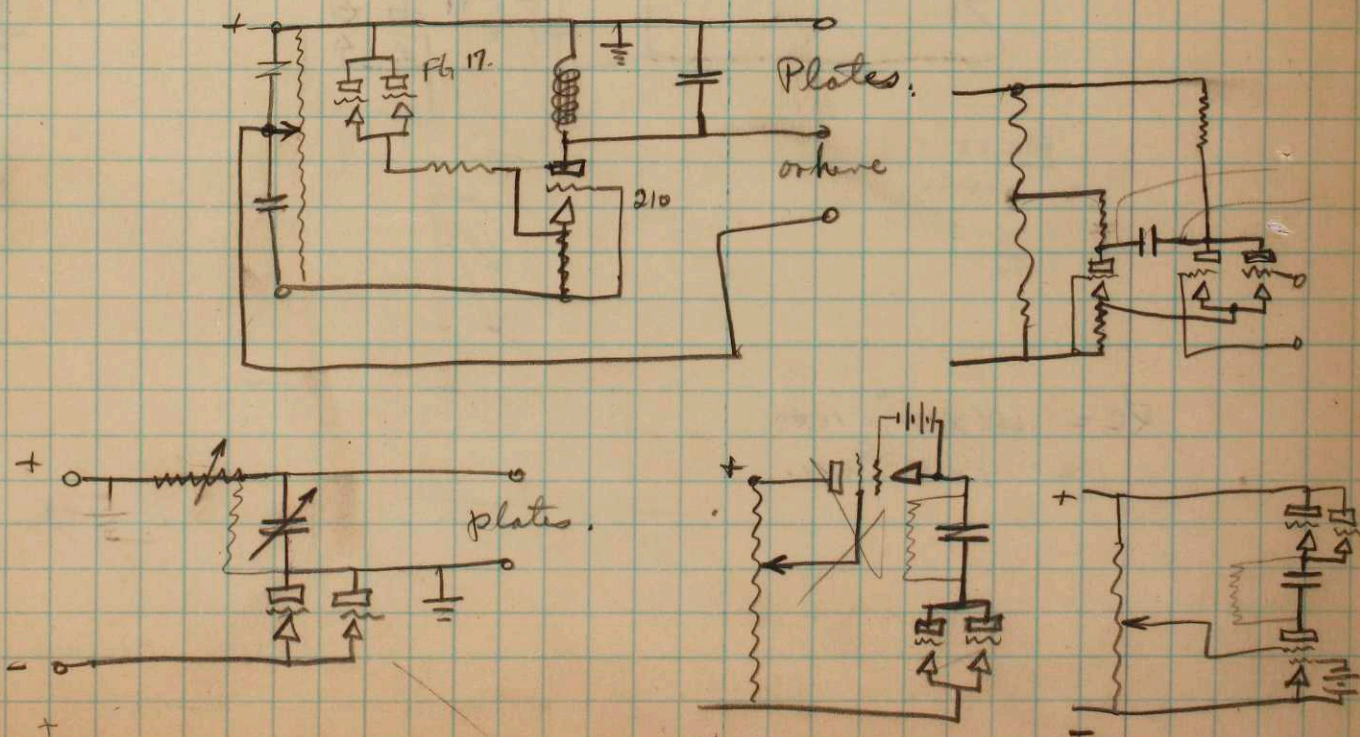 +
FG 17.
Plates.
or here
210
+
plates.
-
+
+
+
-